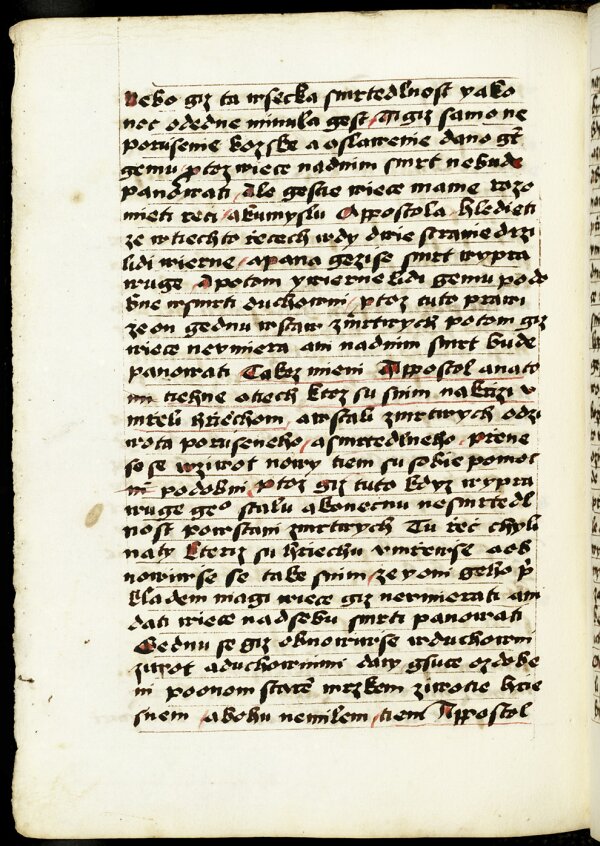 Nebo giz ta wsecka smrtedlnost yako
noc odedne minula gest, gigiz samo ne
porusenie bozske a oslawenie dano gt
gemu ptoz wiece nadnim smrt nebude
panowati Ale gescie wiece mame rozo
mieti reci akumyslu Appostola hledieti
ze wtiechto recech wdy dwie stranie drzi
lidi wierne, apana gezise smrt wypra
wuge Apotom ywierne lidi gemu podo
bne wsmrti duchowni, ptoz tuto prawi
zeon gednu wstaw zmrtwych potom giz
wiece nevmiera ani nadnim smrt bude
panowati Takoz mieni Appostol anato
mi tiehne otiech ktoz su snim nakrizi v
mreli hriechom, awstali zmrtwych odzi
wota poruseneho, asmrtedlneho, prene
so se wziwot nowy tiem su sobie pomoc
ni podobni, ptoz giz tuto kdyz wypra
wuge geo stalu akonecnu nesmrtedl
nost powstani zmrtwych Tu rec chyli
naty kteriz su hriechu vmrewse aob
nowiwse se take snim, zeyoni geho pr
kladem magi wiece giz nevmierati ani
dati wiece nadsebu smrti panowati
Gednu se giz obnowiwse wduchowni
ziwot aduchownimi dary gsuce ozdobe
ni poonom stare mrzkem ziwotie hrie
snem, abohu nemilem, tiem Appostol